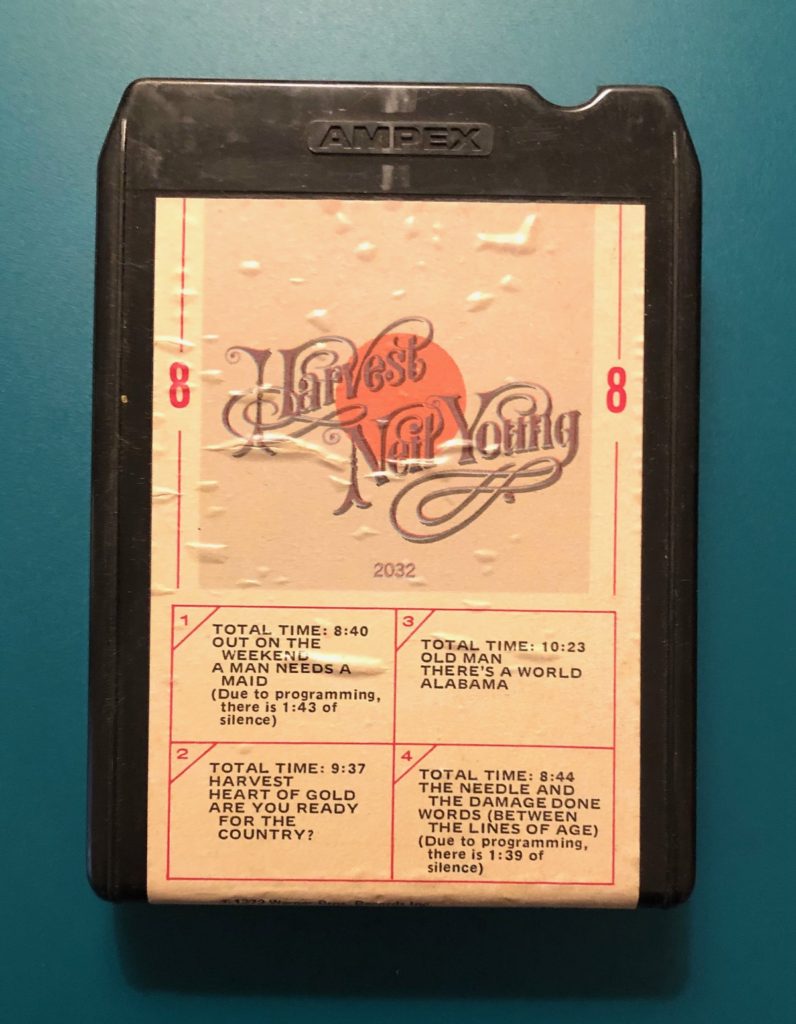 AMPEX
8
8
Harvest
Neil Young
2032
1
TOTAL TIME: 8:40
OUT ON THE
WEEKEND
A MAN NEEDS A
MAID
(Due to programming,
there is 1:43 of
silence)
2
TOTAL TIME: 9:37
HARVEST
HEART OF GOLD
ARE YOU READY
FOR THE
COUNTRY?
3
TOTAL TIME: 10:23
OLD MAN
THERE'S A WORLD
ALABAMA
4
TOTAL TIME: 8:44
THE NEEDLE AND
THE DAMAGE DONE
WORDS (BETWEEN
THE LINES OF AGE)
(Due to programming,
there is 1:39 of
silence)
1972 Warner Bros. Records Inc.